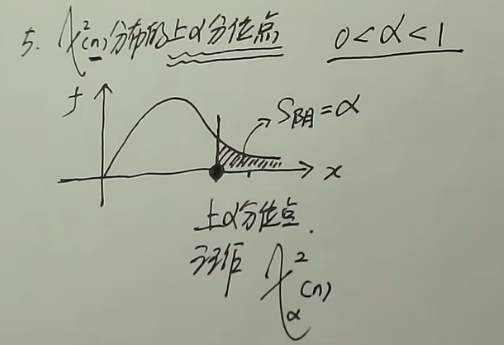 5. χ²(n)分布的上α分位点 0<α<1
f
S阴=α
x
上α分位点.
记作 χ²α(n)